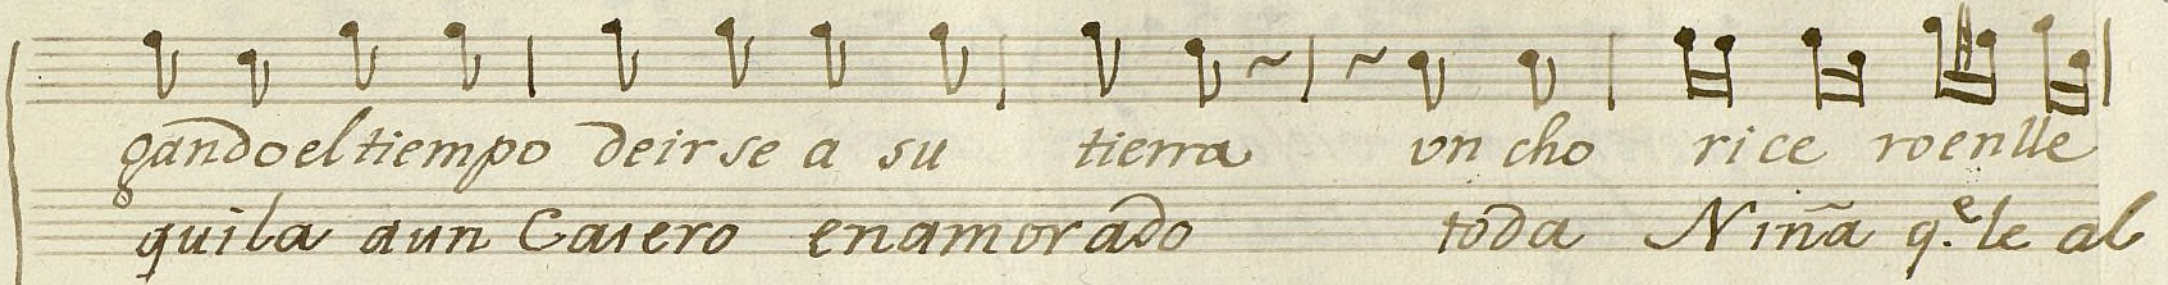 gando el tiempo de irse a su tierra vn cho rice ro en lle
quila a un Casero enamorado toda Niña q.e le al